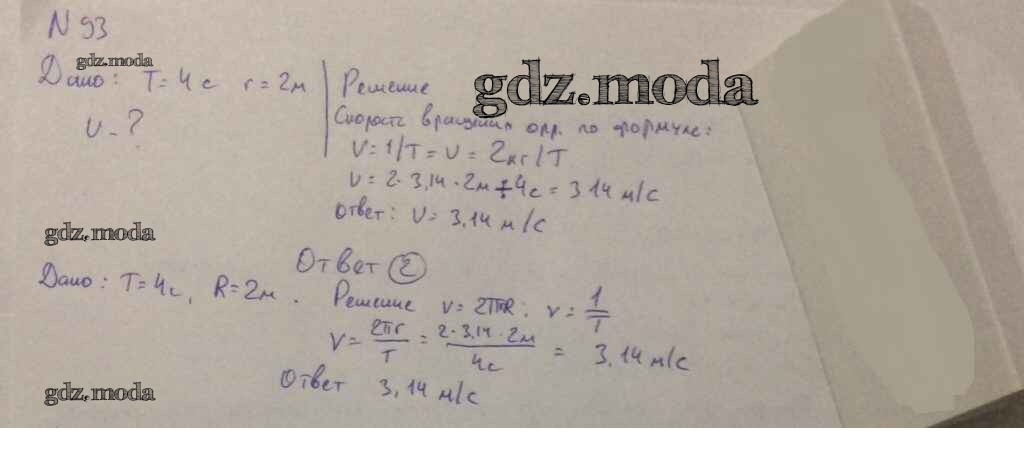 N 93
gdz.moda
Дано: T = 4 с r = 2м
Решение
gdz.moda
υ - ?
Скорость вращения опр. по формуле:
V = 1/T = υ = 2πr/T
υ = 2 · 3,14 · 2м ÷ 4с = 3 14 м/с
Ответ: υ = 3,14 м/с
gdz.moda
Ответ 2
Дано: T = 4с, R = 2м.
Решение v = 2πR: v = 1/T
V = 2πr/T = 2 · 3,14 · 2м/4с = 3,14 м/с
Ответ 3,14 м/с
gdz.moda